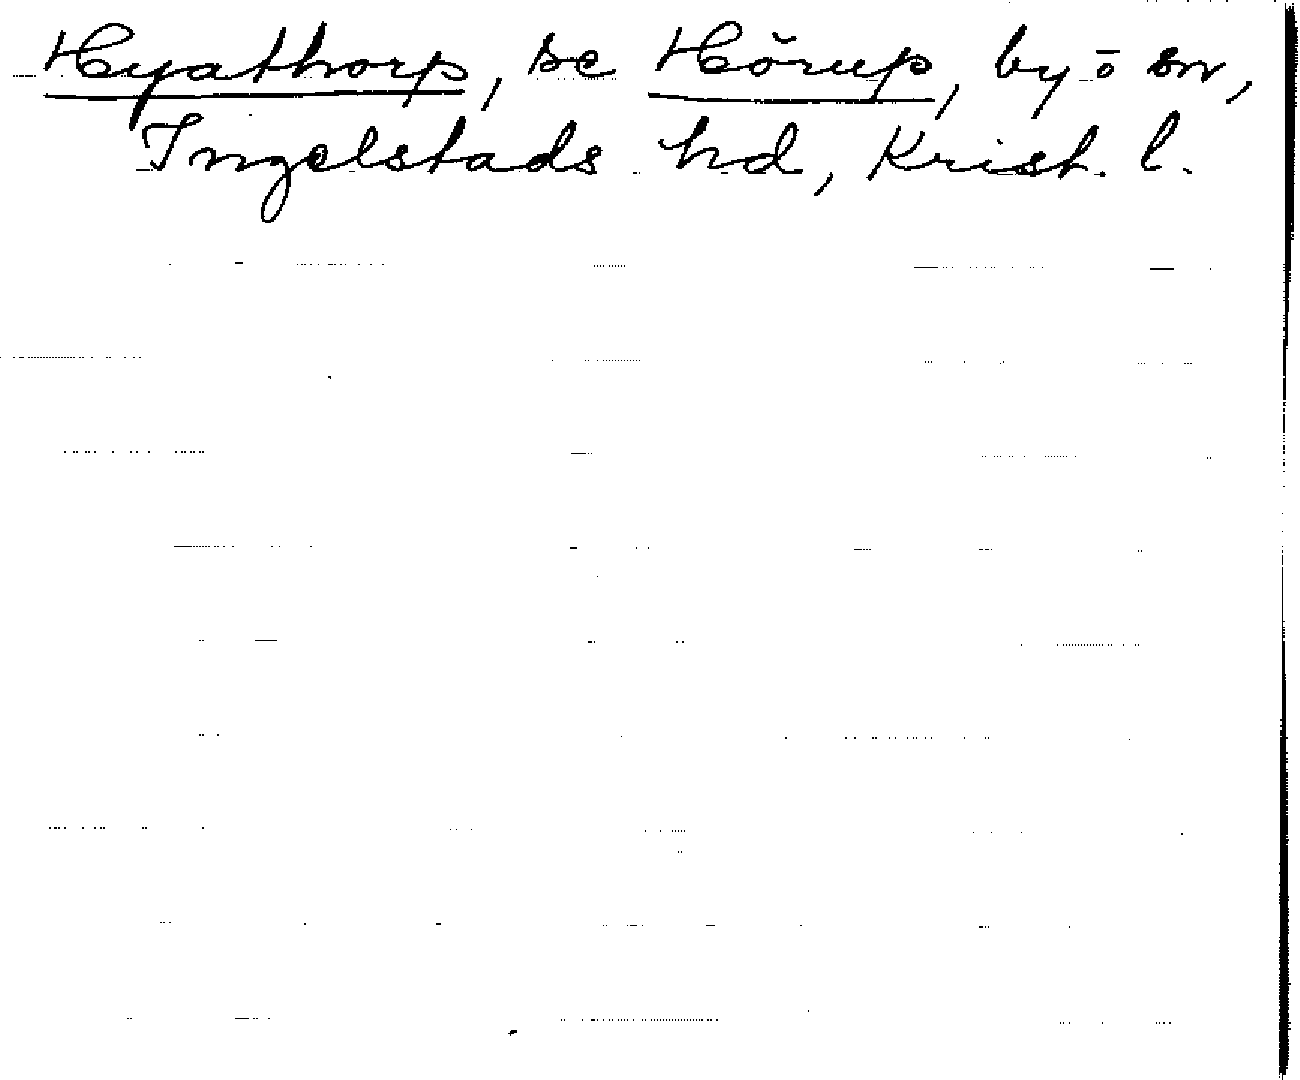 Hyathorp, se Hörup, by o sn,
Ingelstads hd, Krist. l.